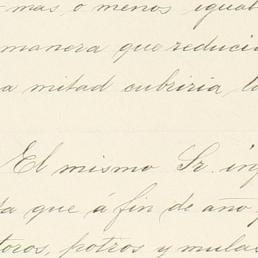 mas, o menos igual
manera que reduci
a mitad cubriria l
El mismo Sr. inf
a que á fin de año
toros, potros y mulas